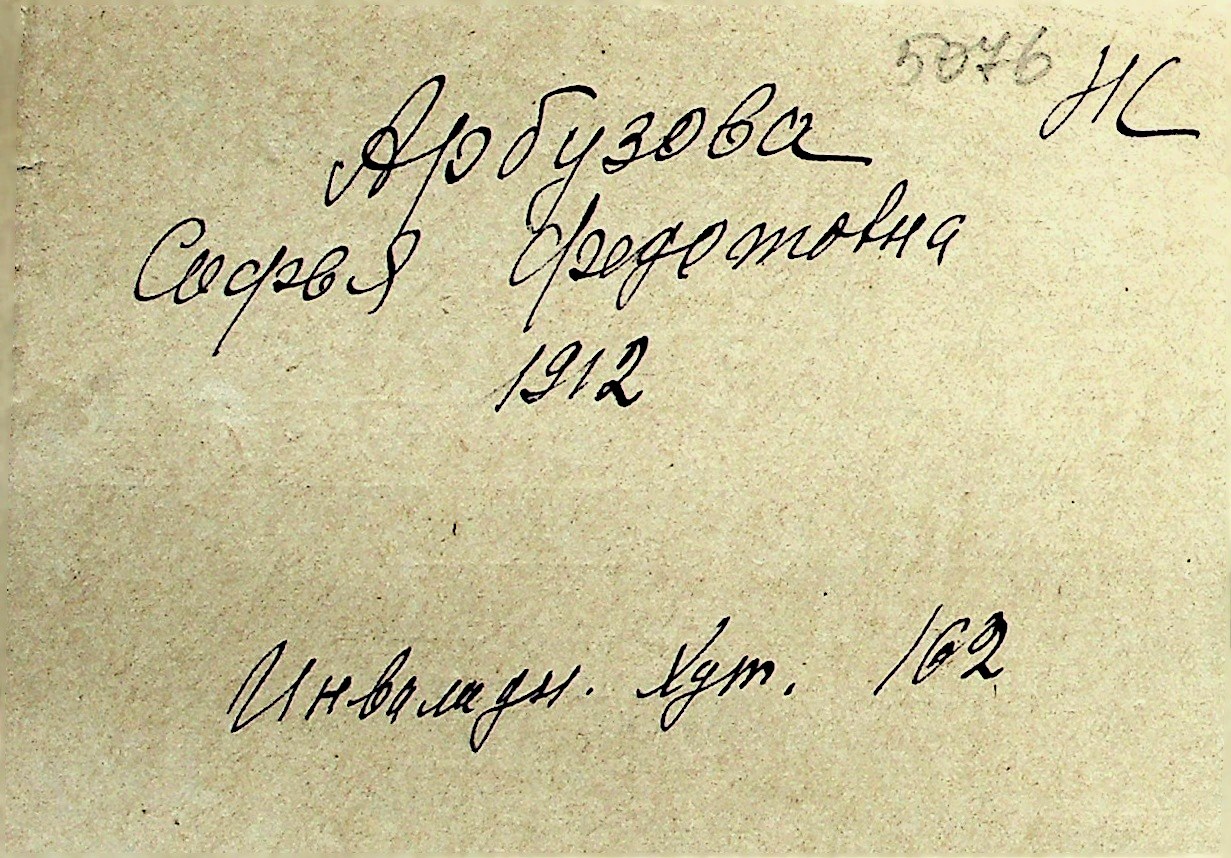 5076 НС
Арбузова
Софья Федотовна
1912
Инвалидн. Хут. 162